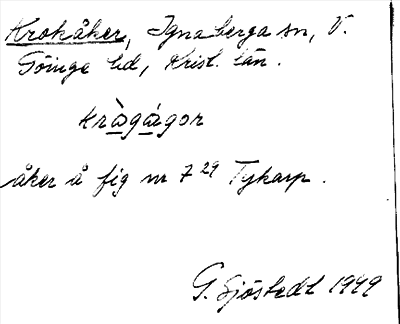 Krokåker, Ignaberga sn, V.
Göinge hd, Krist. län.
kràgágor
åker å fig nr 7²⁹ Tykarp.
G. Sjöstedt 1949